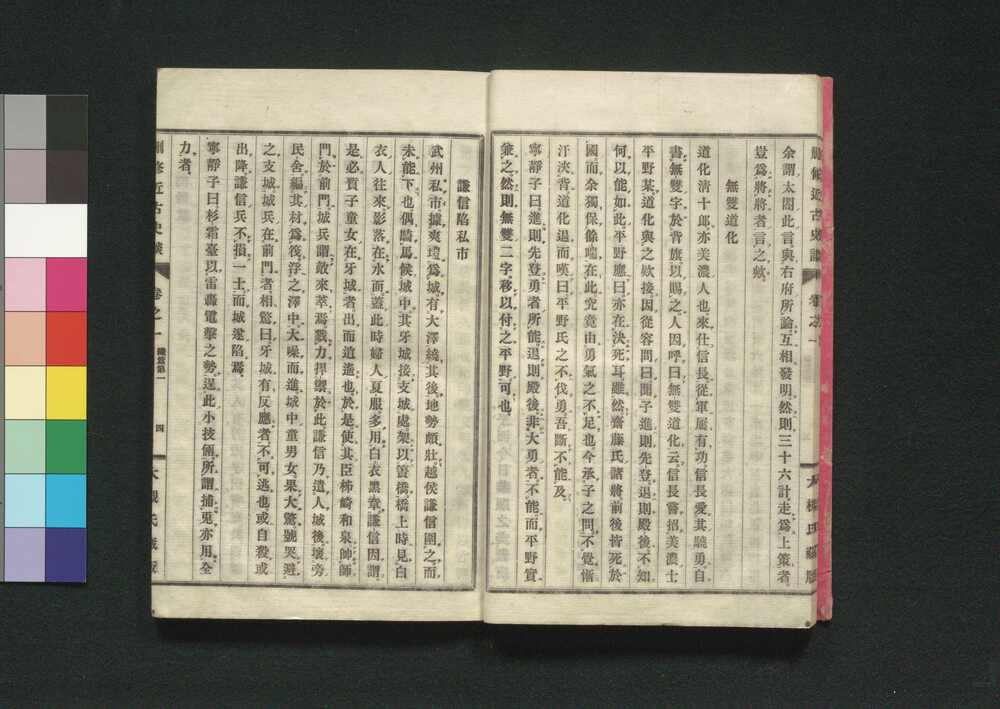 刪修近古史談 卷之一
大槻氏藏版
余謂太閤此言與右府所論互相發明然則三十六計走爲上策者
豈爲將將者言之歟
無雙道化
道化淸十郞亦美濃人也來仕信長從軍屢有功信長愛其驍勇自
書無雙字於背旗以賜之人因呼曰無雙道化云信長嘗招美濃士
平野某道化與之欵接因從容問曰聞子進則先登退則殿後不知
何以能如此平野應曰亦在決死耳雖然齋藤氏諸將前後皆死於
國而余獨保餘喘在此究竟由勇氣之不足也今承子之問不覺慚
汗浹背道化退而嘆曰平野氏之不伐勇吾斷不能及
寧靜子曰進則先登勇者所能退則殿後非大勇者不能而平野實
兼之然則無雙二字移以付之平野可也
謙信陷私市
武州私市據爽塏爲城有大澤繞其後地勢頗壯越侯謙信圍之而
未能下也偶騎馬候城中其牙城接支城處架以簀橋橋上時見白
衣人往來影落在水而蓋此時婦人夏服多用白衣黑章謙信因謂
是必質子童女在牙城者出而逍遙也於是使其臣柿崎和泉帥師
門於前門城兵謂敵來萃焉戮力捍禦於此謙信乃遣人城後壞旁
民舍編其材爲筏浮之澤中大噪而進城中童男女果大驚號哭避
之支城城兵在前門者相驚曰牙城有反應者不可逃也或自殺或
出降謙信兵不損一士而城遂陷焉
寧靜子曰杉霜臺以雷轟電擊之勢逞此小技倆所謂捕兎亦用全
力者
刪修近古史談 卷之一 織篇第一 四 大槻氏藏版